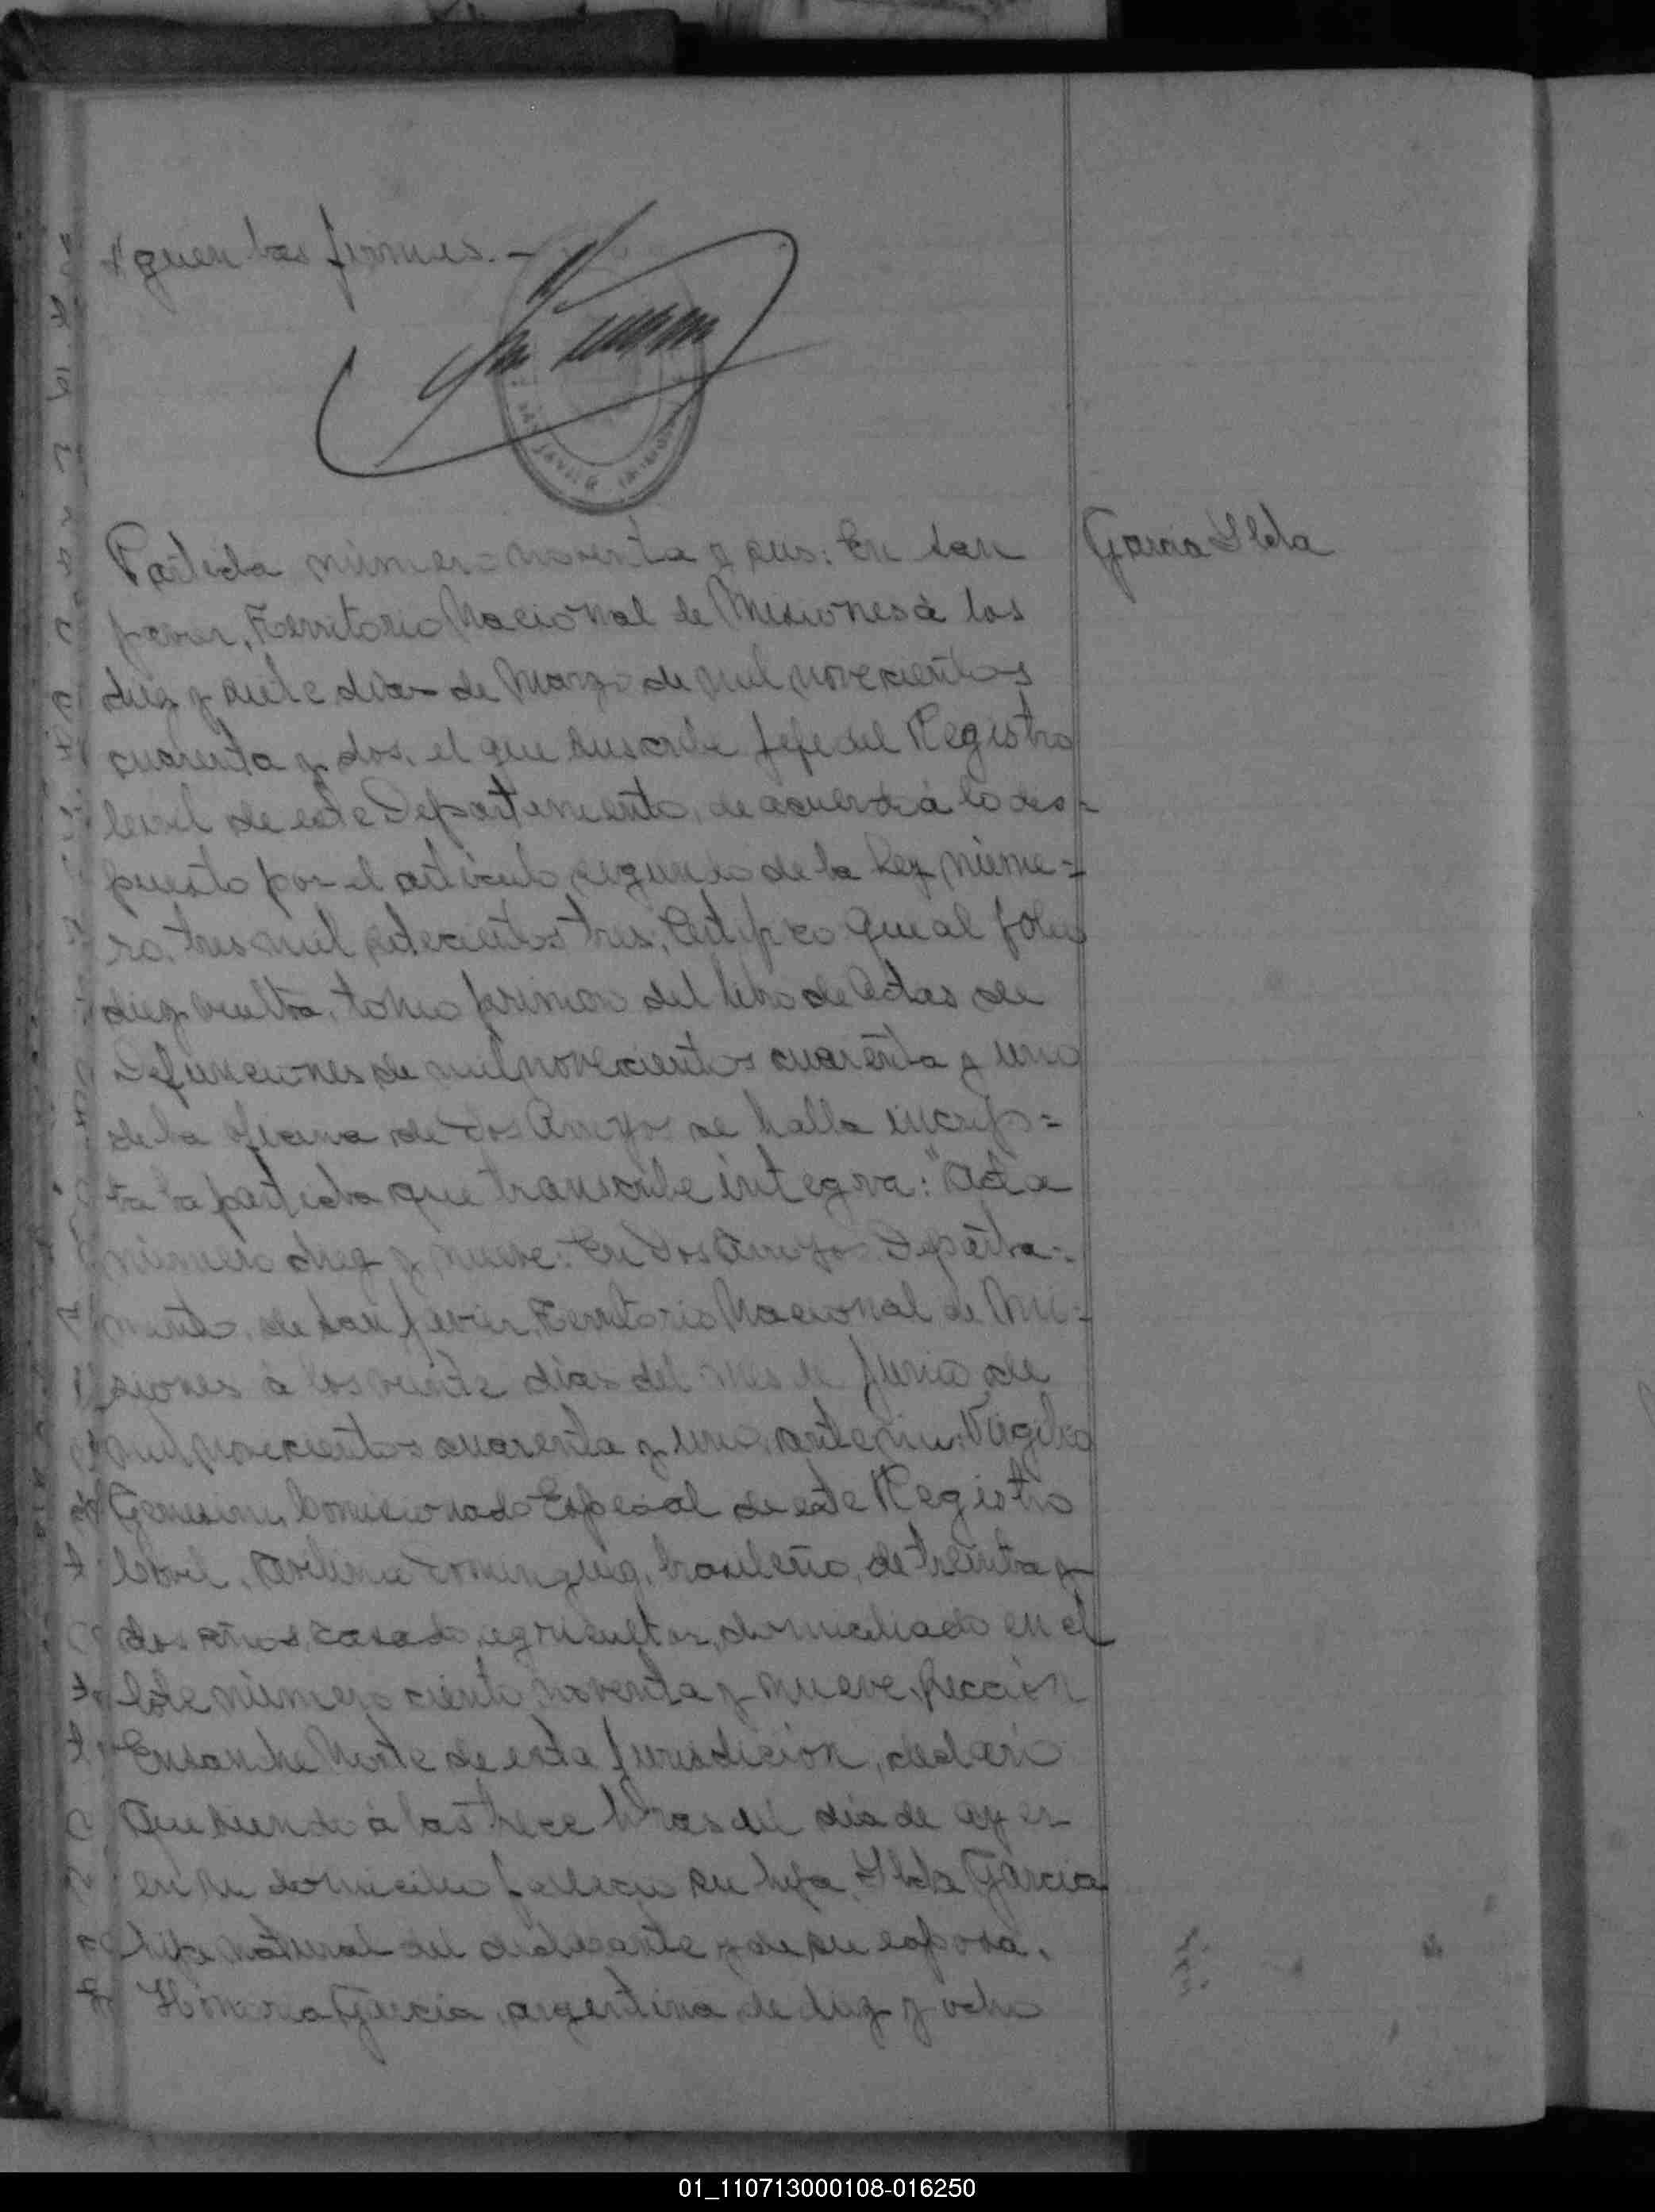 siguen las firmas. -
SAN JAVIER
Partida número noventa y seis: En San
Javier, Territorio Nacional de Misiones á los
diez y siete dias de Marzo de mil novecientos
cuarenta y dos, el que suscribe Jefe del Registro
Civil de este Departamento, de acuerdo á lo des-
puesto por el artículo segundo de la Ley núme=
ro tres mil setecientos tres; Certifico que al folio
diez vuelta, tomo primero del libro de Actas de
Defunciones de mil novecientos cuarenta y uno
de la oficina de Dos Arroyos se halla inscrip=
ta la partida que transcribe integra: "Acta
número diez y nueve: En Dos Arroyos Departa=
mento de San Javier, Territorio Nacional de Mi=
siones á los veinte dias del mes de Junio de
mil novecientos cuarenta y uno, ante mi: Virgilio
Comisionado Especial de este Registro
Civil, brasileño, de treinta y
dos años, casado, agricultor, domiciliado en el
lote número ciento noventa y nueve, Sección
Ensanche Norte de esta Jurisdicion, declaró
Que siendo á las trece horas del dia de ayer
en su domicilio fallecio su hija Ilda Garcia
hija natural del declarante y de su esposa,
Garcia, argentina, de diez y ocho
Garcia Ilda
01_110713000108-016250